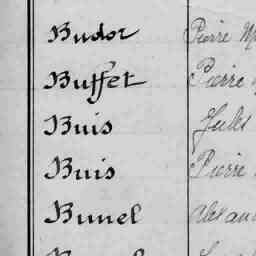 Budor Pierre
Buffet Pierre
Buis Jules
Buis Pierre
Bunel